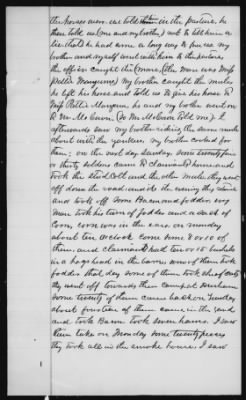 the horses were. we told them in the pasture. he
then told us (me and my brother) not to tell him a
lie that he had come a long way to find me my
brother and myself went with him to the pasture
the officer caught the (mare) (the mare was Miss
Pattie Mangums) my brother caught the mules
he left his horse and told us to give his horse to
Miss Pattie Mangum, he and my brother went on
to Mr McCown (so Mr McCown told me) I
afterwards saw my brother riding the same mule
about with the yankees my brother cooked for
them; on the next day Sunday some twenty five
or thirty soldiers came to claimants house and
took the stud colt and the other mule, they went
off down the road and in the evening they came
and took off some Bacon and fodder every
man took his turn of fodder and a sack of
Corn, corn was in the ear on monday
about ten Oclock come some 8 or 10 of
them and claimant had ten or 15 bushels
in a hogshead in the barn and some of them took
fodder that day some of them took the oats
they went off towards their camp at Durham
some twenty of them came back on Tuesday
about fourteen of them came in the yard
and took Bacon took seven hams. I saw
them take on Monday some twenty pieces
they took all in the smoke house. I saw